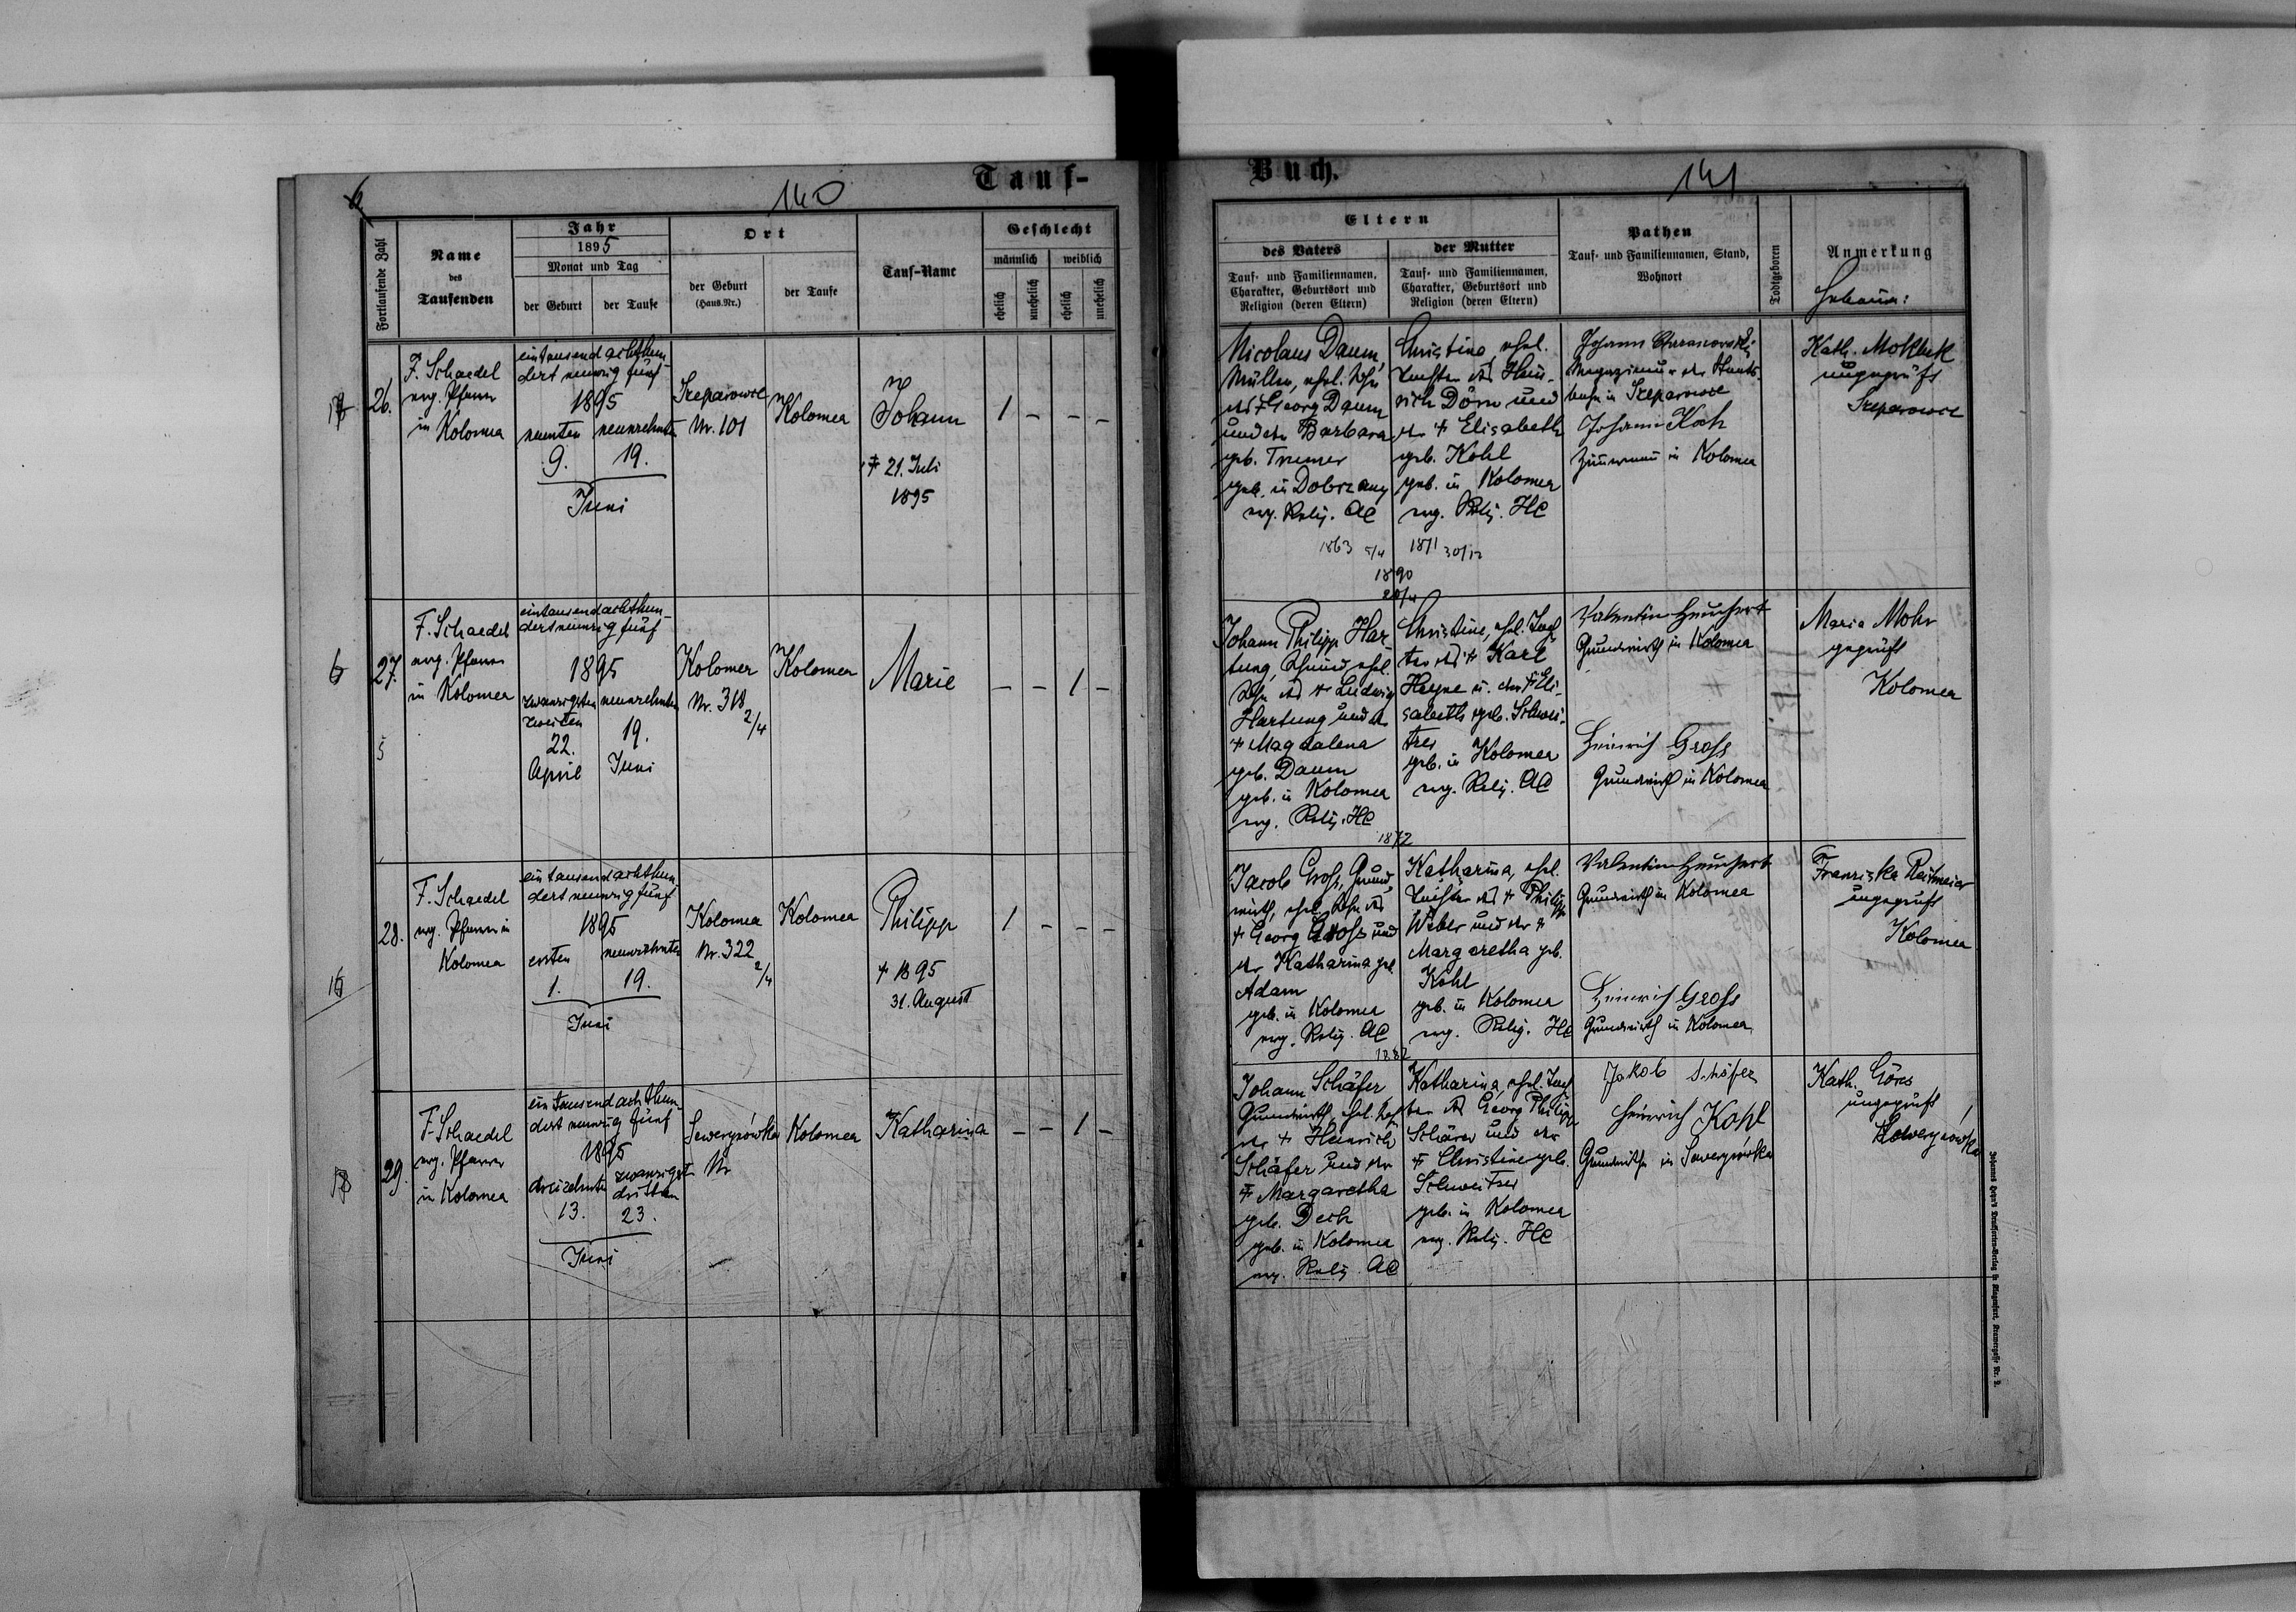 Tauf-
Buch.
140
141
Fortlaufende Zahl
Name
des
Taufenden
Jahr
1895
Monat und Tag
der Geburt
der Taufe
Ort
der Geburt
(Haus.Nr.)
der Taufe
Tauf-Name
Geschlecht
männlich
weiblich
ehelich
unehelich
ehelich
unehelich
Eltern
des Vaters
Tauf- und Familiennamen,
Charakter, Geburtsort und
Religion (deren Eltern)
der Mutter
Tauf- und Familiennamen,
Charakter, Geburtsort und
Religion (deren Eltern)
Pathen
Tauf- und Familiennamen, Stand,
Wohnort
Todtgeboren
Anmerkung
Hebamme:
26.
F. Schaedel
evg. Pfarrer
in Kolomea
eintausend achthun-
dert neunzig fünf
1895
neunten
9.
neunzehnten
19.
Juni
Szeparowce
Nr. 101
Kolomea
Johann
‡ 21. Juli
1895
1 - - -
Nicolaus Daum,
Müller, ehel. Sohn
des ‡ Georg Daum
und der Barbara
geb. Tremer
geb. in Dobrzany
evg. Relig. AC
1863 5/4
Christine, ehel.
Tochter des Hein-
rich Dörn und
der ‡ Elisabeth
geb. Kohl
geb. in Kolomea
evg. Relig. HC
1871 30/12
Johann
Magazineur der Staats-
bahn in Szeparowce
Johann Koch
Zimmermann in Kolomea
Kath. Mokbek
ungeprüft
Szeparowce
6
27.
F. Schaedel
evg. Pfarrer
in Kolomea
eintausend achthun-
dert neunzig fünf
1895
zwanzigsten
zweiten
22.
April
neunzehnten
19.
Juni
Kolomea
Nr. 318
2/4
Kolomea
Marie
- - 1 -
1890
20/4
Johann Philipp Har-
tung, Schmied, ehel.
Sohn des ‡ Ludwig
Hartung und der
‡ Magdalena
geb. Daum
geb. in Kolomea
evg. Relig. HC
Christine, ehel. Toch-
ter des ‡ Karl
Heyne u. der ‡ Eli-
sabeth geb. Schwei-
tzer
geb. in Kolomea
evg. Relig. AC
Valentin Heuchert
Grundwirth in Kolomea
Heinrich Gross
Grundwirth in Kolomea
Maria Mohr
geprüft
Kolomea
5
28.
F. Schaedel
evg. Pfarrer in
Kolomea
eintausend achthun-
dert neunzig fünf
1895
ersten
1.
neunzehnten
19.
Juni
Kolomea
Nr. 322
2/4
Kolomea
Philipp
‡ 1895
31. August
1 - - -
1872
Jacob Gross, Grund-
wirth, ehel. Sohn des
‡ Georg Gross und
der Katharina geb.
Adam
geb. in Kolomea
evg. Relig. AC
Katharina, ehel.
Tochter des ‡ Philipp
Weber und der ‡
Margaretha geb.
Kohl
geb. in Kolomea
evg. Relig. HC
Valentin Heuchert
Grundwirth in Kolomea
Heinrich Gross
Grundwirth in Kolomea
Franziska Reitmeier
ungeprüft
Kolomea
29.
F. Schaedel
evg. Pfarrer
in Kolomea
eintausend achthun-
dert neunzig fünf
1895
dreizehnten
13.
zwanzigst
dritten
23.
Juni
Sewerynówka
Nr
Kolomea
Katharina
- - 1 -
1882
Johann Schäfer,
Grundwirth, ehel. Sohn
des ‡ Heinrich
Schäfer und der
‡ Margaretha
geb. Dech
geb. in Kolomea
evg. Relig. AC
Katharina, ehel. Toch-
ter des Georg Philipp
Schärer und der
‡ Christine geb.
Schweitzer
geb. in Kolomea
evg. Relig. HC
Jakob Schäfer
Heinrich Kohl
Grundwirthe in Sewerynówka
Kath. Göres
ungeprüft
Sewerynówka
Johann Heyn's Drucksorten-Verlag in Klagenfurt, Kramergasse Nr. 9.